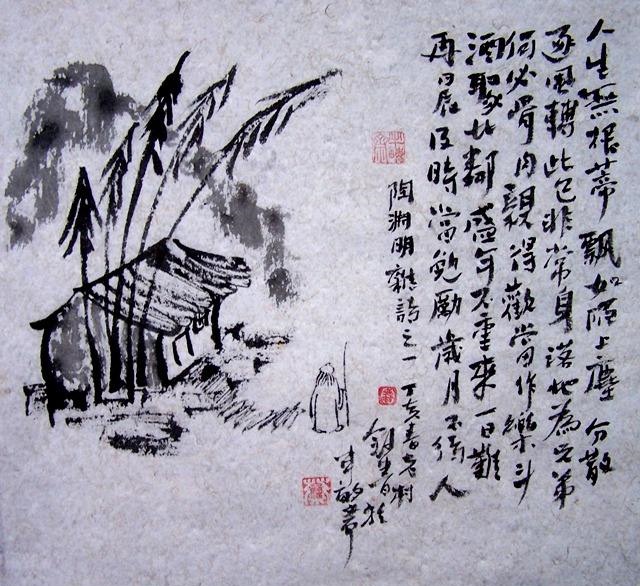 人生無根蒂飄如陌上塵分散
逐風轉此已非常身落地為兄弟
何必骨肉親得歡當作樂斗
酒聚比鄰盛年不重來一日難
再晨及時當勉勵歲月不待人
陶淵明雜詩之一 丁亥春老樹